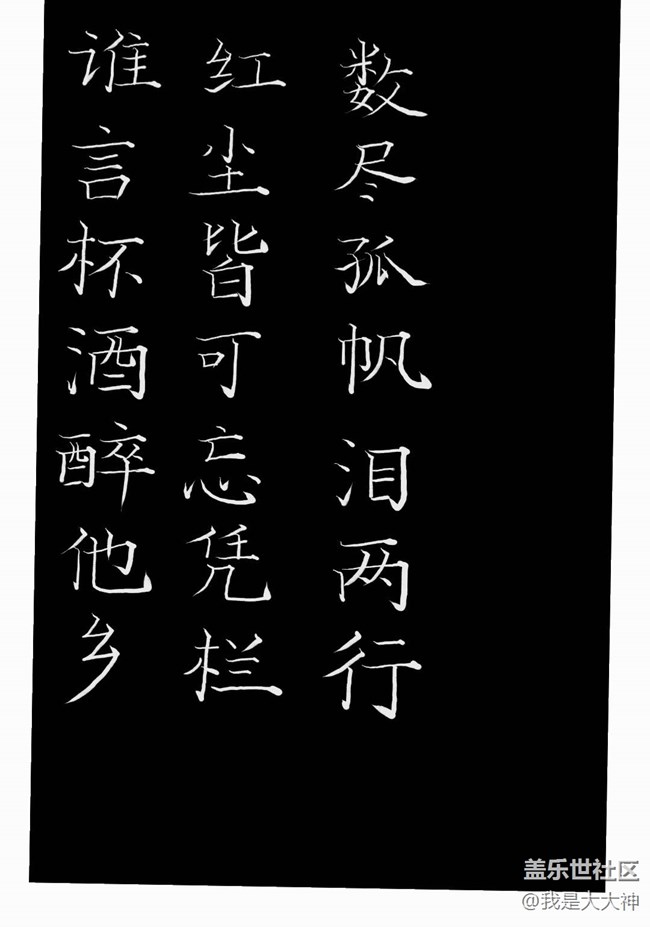 数尽孤帆泪两行
红尘皆可忘凭栏
谁言杯酒醉他乡
盖乐世社区
@我是大大神